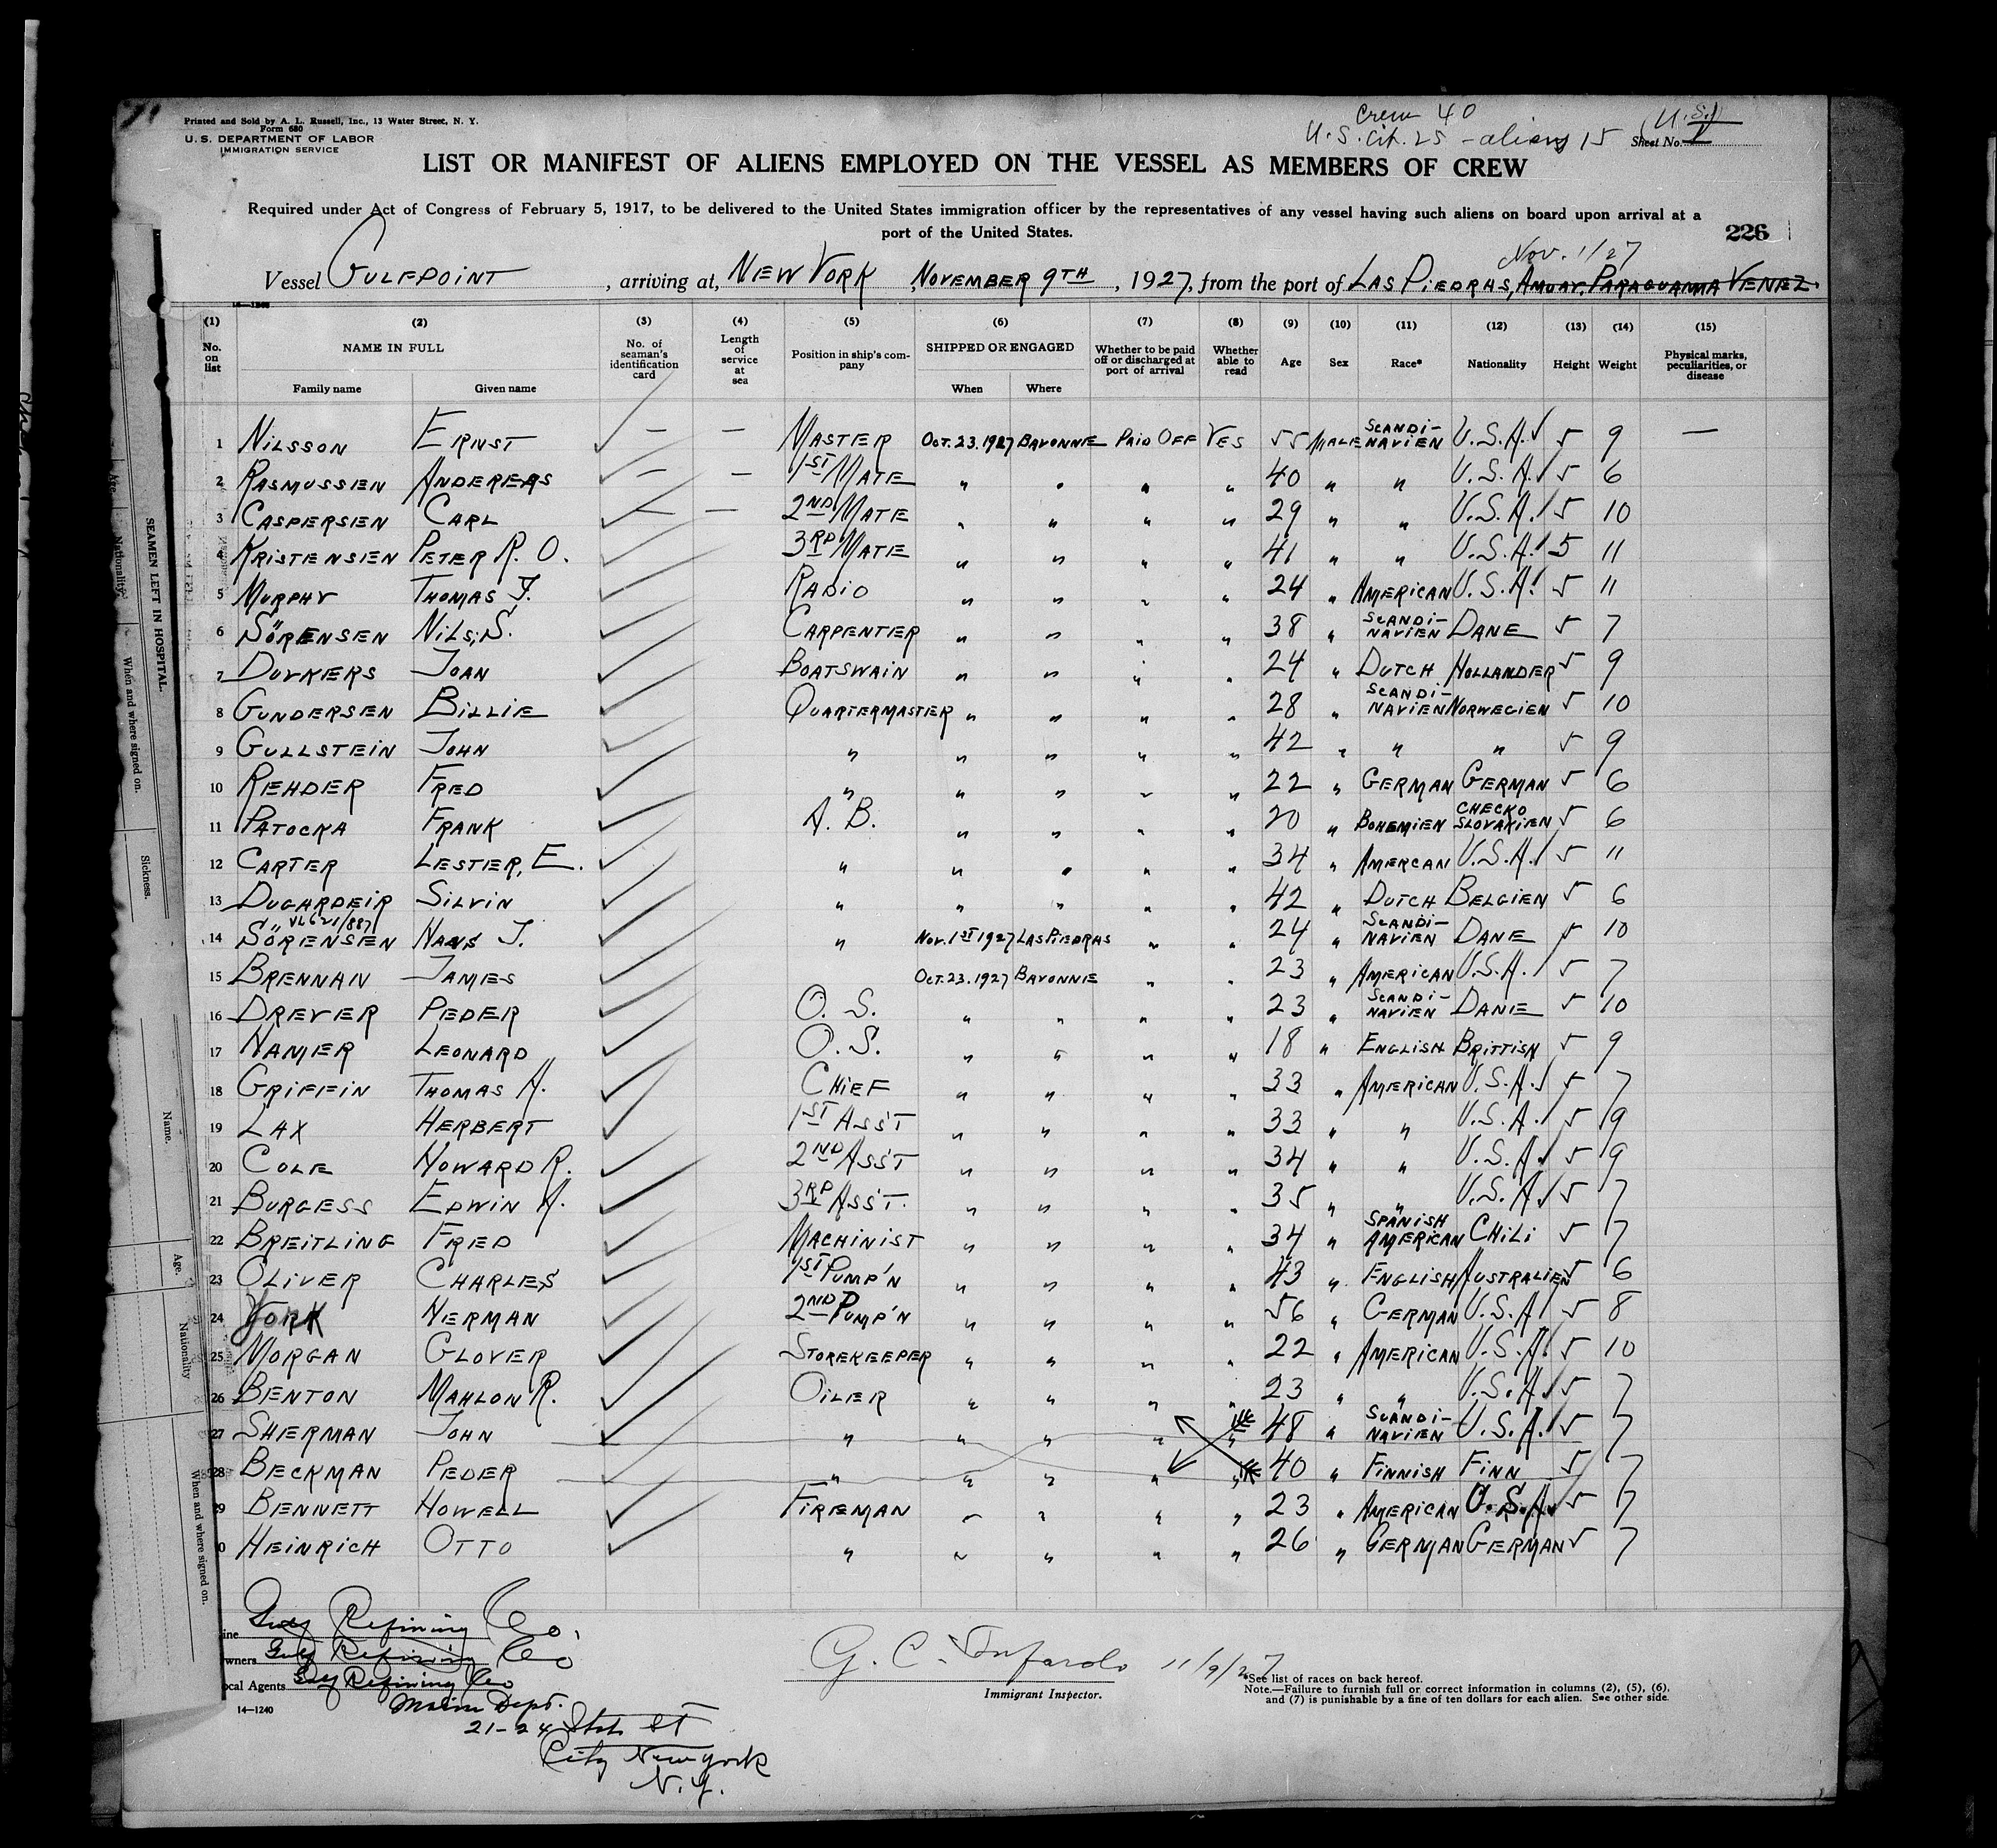 Printed and Sold by A. L. Russell, Inc., 13 Water Street, N. Y.
Form 680
U. S. DEPARTMENT OF LABOR
IMMIGRATION SERVICE
Crew 40
U.S. cit. 25 - aliens 15
(U.S.)
Sheet No. 1
LIST OR MANIFEST OF ALIENS EMPLOYED ON THE VESSEL AS MEMBERS OF CREW
Required under Act of Congress of February 5, 1917, to be delivered to the United States immigration officer by the representatives of any vessel having such aliens on board upon arrival at a
port of the United States.
226
Nov. 1/27
Vessel GULFPOINT, arriving at, NEW YORK NOVEMBER 9TH, 1927, from the port of LAS PIEDRAS, AMUAY, PARAGUANA VENEZ.
(1) (2) (3) (4) (5) (6) (7) (8) (9) (10) (11) (12) (13) (14) (15)
No. on list NAME IN FULL No. of seaman's identification card Length of service at sea Position in ship's company SHIPPED OR ENGAGED Whether to be paid off or discharged at port of arrival Whether able to read Age Sex Race* Nationality Height Weight Physical marks, peculiarities, or disease
Family name Given name When Where
1 NILSSON ERNST — — MASTER OCT. 23. 1927 BAYONNE PAID OFF YES 55 MALE SCANDI-NAVIEN U.S.A. 5 9 —
2 RASMUSSEN ANDEREAS — — 1ST MATE " " " " 40 " " U.S.A. 5 6
3 CASPERSEN CARL — — 2ND MATE " " " " 29 " " U.S.A. 5 10
4 KRISTENSIEN PETER R. O. 3RD MATE " " " " 41 " " U.S.A. 5 11
5 MURPHY THOMAS J. RADIO " " " " 24 " AMERICAN U.S.A. 5 11
6 SÖRENSEN NILS, S. CARPENTER " " " " 38 " SCANDI-NAVIEN DANE 5 7
7 DUYKERS JOAN BOATSWAIN " " " " 24 " DUTCH HOLLANDER 5 9
8 GUNDERSEN BILLIE QUARTERMASTER " " " " 28 " SCANDI-NAVIEN NORWEGIEN 5 10
9 GULLSTEIN JOHN " " " " " 42 " " " 5 9
10 REHDER FRED " " " " " 22 " GERMAN GERMAN 5 6
11 PATOCKA FRANK A. B. " " " " 20 " BOHEMIEN CHECKO SLOVAKIEN 5 6
12 CARTER LESTER, E. " " " " " 34 " AMERCAN U.S.A. 5 11
13 DUGARDEIR SILVIN " " " " " 42 " DUTCH BELGIEN 5 6
VL 621/887
14 SÖRENSEN HANS J. " NOV. 1ST 1927 LAS PIEDRAS " " 24 " SCANDI-NAVIEN DANE 5 10
15 BRENNAN JAMES OCT. 23. 1927 BAYONNE " " 23 " AMERICAN U.S.A. 5 7
16 DREYER PEDER O. S. " " " " 23 " SCANDI-NAVIEN DANE 5 10
17 HAMER LEONARD O. S. " " " " 18 " ENGLISH BRITTISH 5 9
18 GRIFFIN THOMAS A. CHIEF " " " " 33 " AMERICAN U.S.A. 5 7
19 LAX HERBERT 1ST ASS'T " " " " 33 " " U.S.A. 5 9
20 COLE HOWARD R. 2ND ASS'T " " " " 34 " " U.S.A. 5 9
21 BURGESS EDWIN A. 3RD ASS'T. " " " " 35 " " U.S.A. 5 7
22 BREITLING FRED MACHINIST " " " " 34 " SPANISH AMERICAN CHILI 5 7
23 OLIVER CHARLES 1ST PUMP'N " " " " 43 " ENGLISH AUSTRALIEN 5 6
24 YORK HERMAN 2ND PUMP'N " " " " 56 " GERMAN U.S.A. 5 8
25 MORGAN GLOVER STOREKEEPER " " " " 22 " AMERICAN U.S.A. 5 10
26 BENTON MAHLON R. OILER " " " " 23 " " U.S.A. 5 7
27 SHERMAN JOHN " " " " " 48 " SCANDI-NAVIEN U.S.A. 5 7
28 BECKMAN PEDER " " " " " 40 " FINNISH FINN 5 7
29 BENNETT HOWELL FIREMAN " " " " 23 " AMERICAN U.S.A. 5 7
0 HEINRICH OTTO " " " " " 26 " GERMAN GERMAN 5 7
ine Gulf Refining Co.
wners Gulf Refining Co
ocal Agents Gulf Refining Co
Marine Dept.
21-24 State St
City New York
N.Y.
14—1240
11/9/27
Immigrant Inspector.
*See list of races on back hereof.
Note.—Failure to furnish full or correct information in columns (2), (5), (6),
and (7) is punishable by a fine of ten dollars for each alien. See other side.
SEAMEN LEFT IN HOSPITAL.
Age.
Nationality.
When and where signed on.
Sickness.
Name.
Age.
Nationality
When and where signed on.